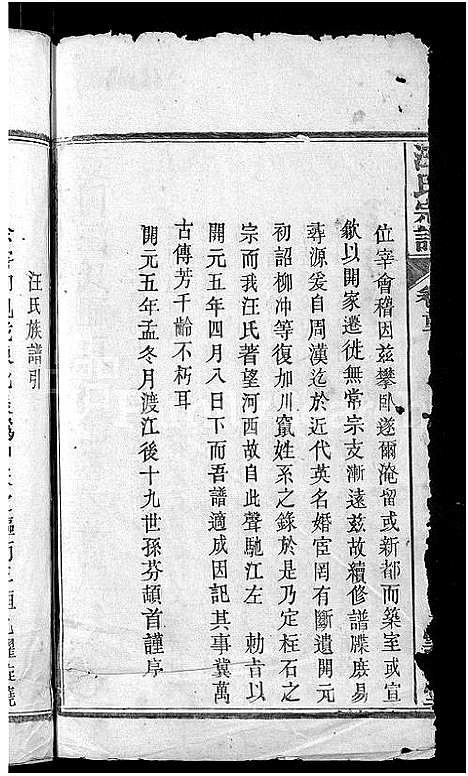 汪氏宗譜
位宰會稽因兹攀臥遂爾淹留或新都而築室或宣
歙以開家遷徙無常宗支漸遠兹故續修譜牒庶易
尋源爰自周漢迄於近代英名婚宦罔有斷遺開元
初詔柳冲等復加川竄姓系之錄於是乃定柱石之
宗而我汪氏著望河西故自此聲馳江左 勅吉以
開元五年四月八日下而吾譜適成因記其事冀萬
古傳芳千齡不朽耳
開元五年孟冬月渡江後十九世孫芬頓首謹序
汪氏族譜引